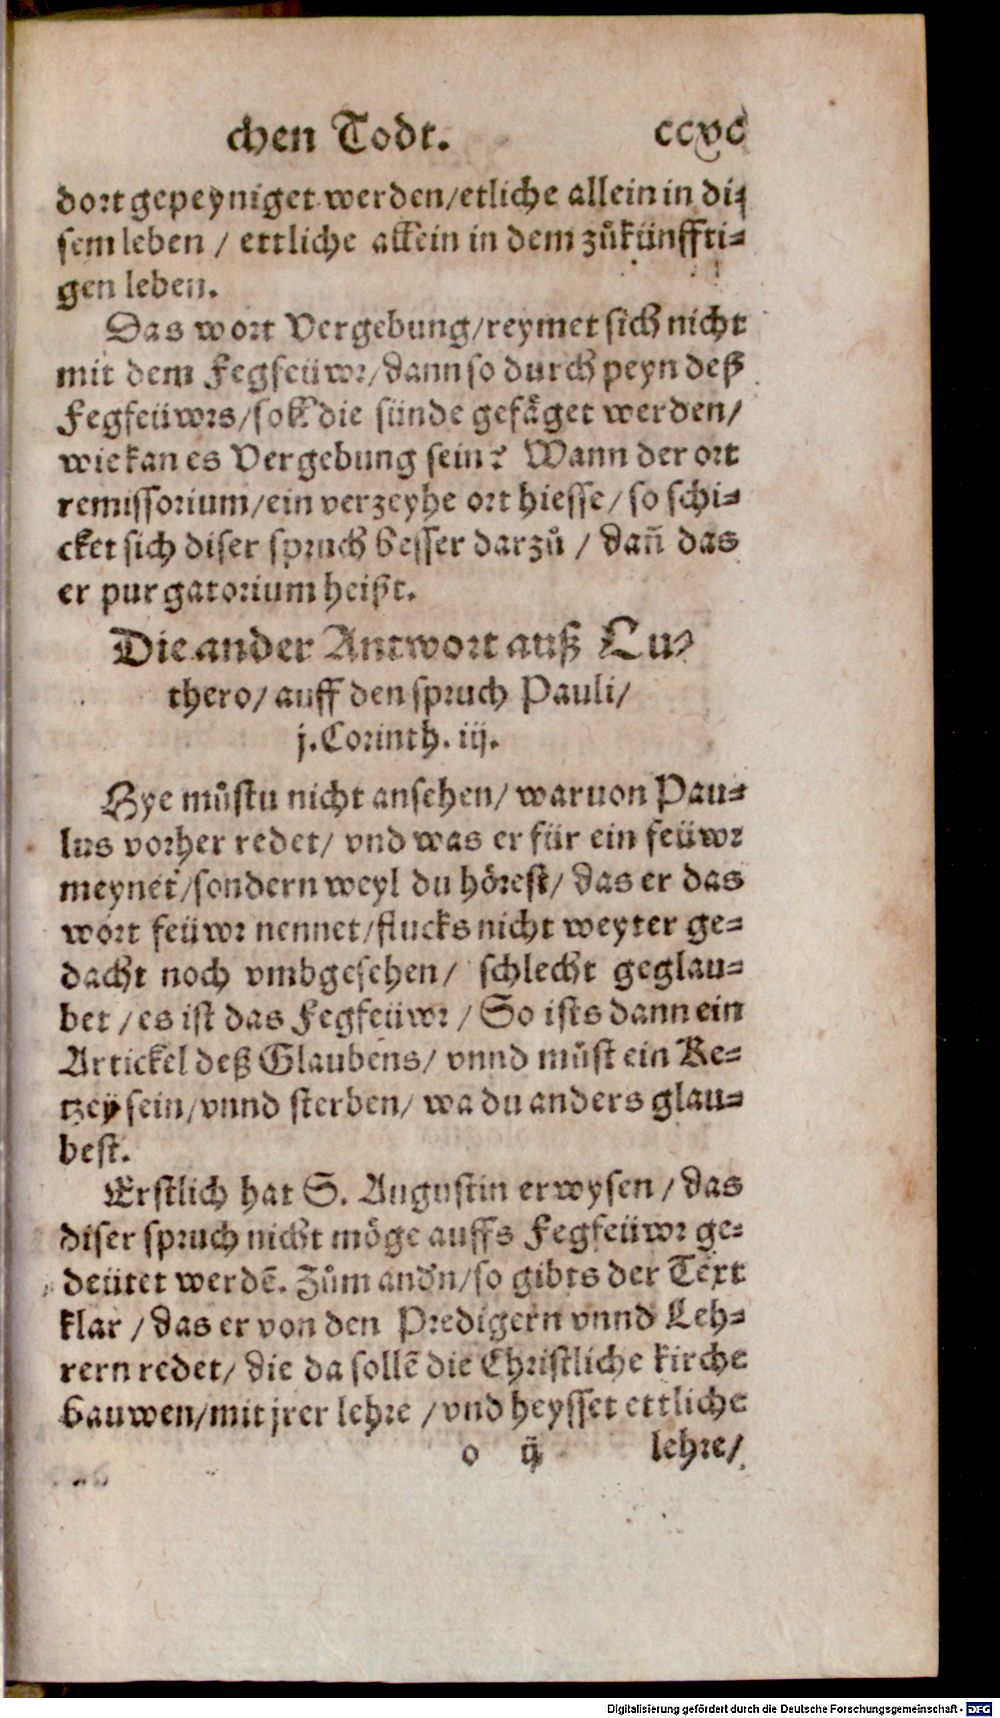 chen Todt. ccxc
dort gepeyniget werden/etliche allein in di⸗
sem leben / ettliche allein in dem zůkünffti⸗
gen leben.
Das wort Vergebung/reymet sich nicht
mit dem Fegfeüwr/dann so durch peyn deß
Fegfeüwrs/soll die sünde gefäget werden/
wie kan es Vergebung sein? Wann der ort
remissorium/ein verzeyhe ort hiesse/so schi⸗
cket sich diser spruch besser darzů / dañ das
er purgatorium heißt.
Die ander Antwort auß Lu⸗
thero/auff den spruch Pauli/
j.Corinth. iij.
Hye můstu nicht ansehen/waruon Pau⸗
lus vorher redet/ vnd was er für ein feüwr
meynet/sondern weyl du hörest/das er das
wort feüwr nennet/flucks nicht weyter ge⸗
dacht noch vmbgesehen/ schlecht geglau⸗
bet /es ist das Fegfeüwr / So ists dann ein
Artickel deß Glaubens/ vnnd můst ein Ke⸗
tzey sein/vnnd sterben/ wa du anders glau⸗
best.
Erstlich hat S. Augustin erwysen/das
diser spruch nicht möge auffs Fegfeüwr ge⸗
deütet werdē. Zům andn̄/so gibts der Text
klar /das er von den Predigern vnnd Leh⸗
rern redet/ die da sollē die Christliche kirche
bauwen/mit jrer lehre /vnd heysset ettliche
o ij lehre/
Digitalisierung gefördert durch die Deutsche Forschungsgemeinschaft - DFG